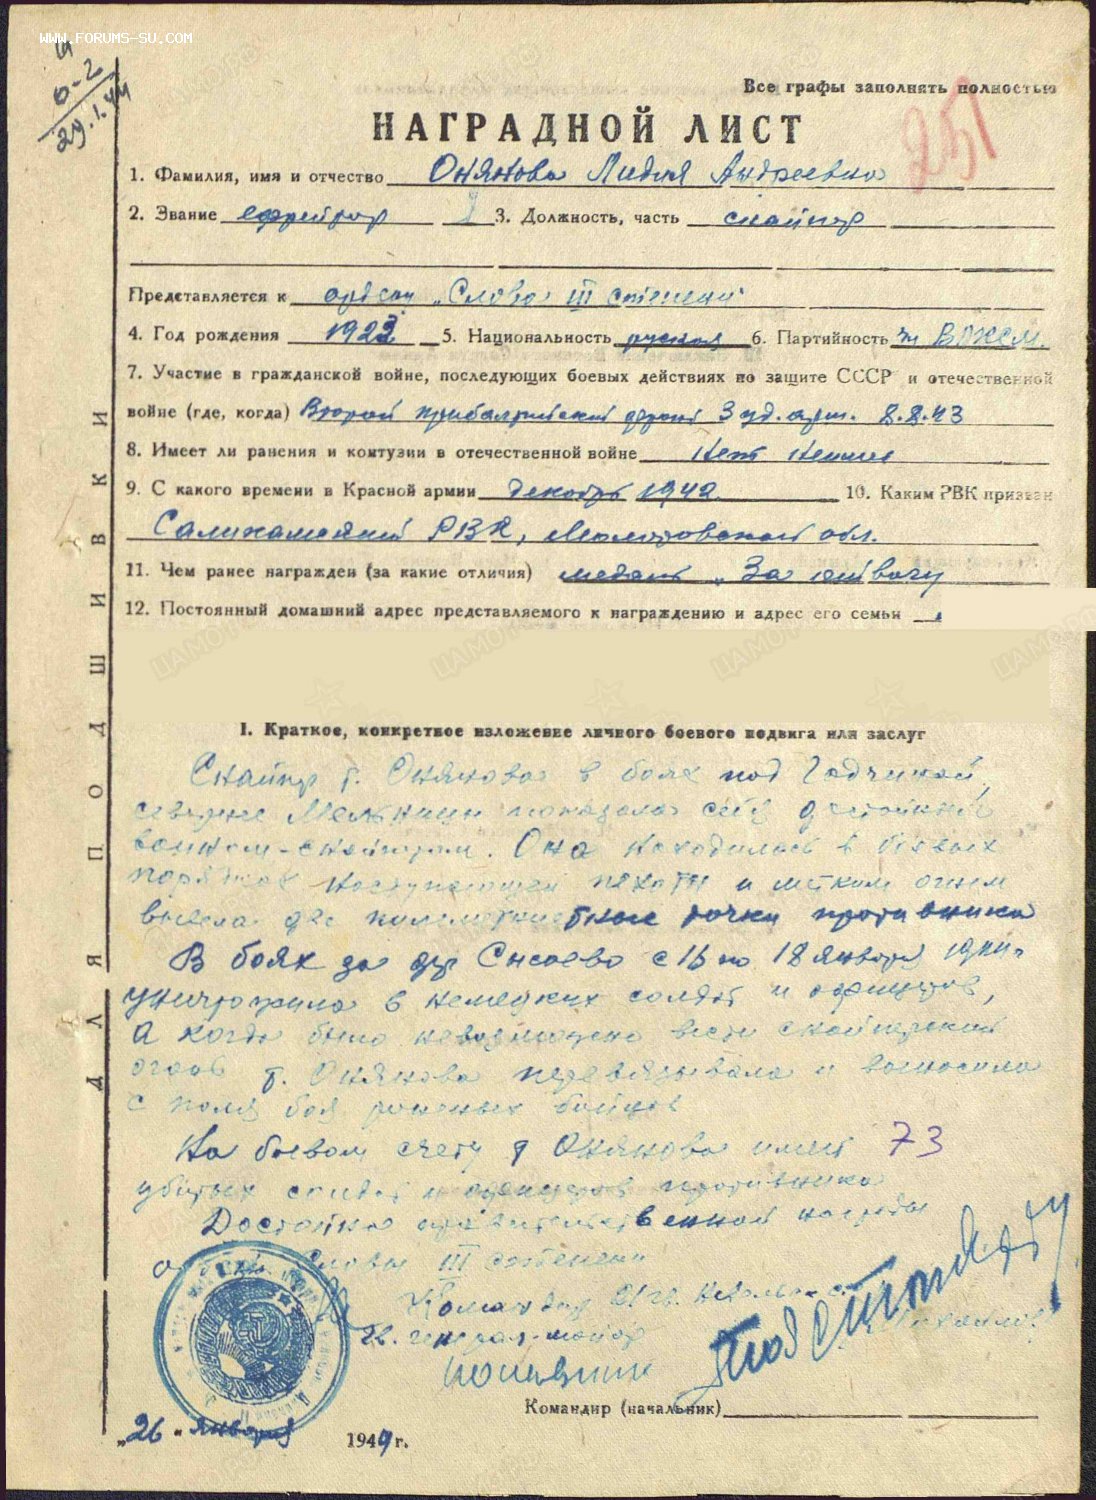 WWW.FORUMS-SU.COM
6-2
29.1.44
Все графы заполнять полностью
251
НАГРАДНОЙ ЛИСТ
1. Фамилия, имя и отчество Онянова Лидия Андреевна
2. Звание ефрейтор 3. Должность, часть снайпер
Представляется к орден „Слава III степени"
4. Год рождения 1923 5. Национальность руская 6. Партийность чл ВЛКСМ.
7. Участие в гражданской войне, последующих боевых действиях по защите СССР и отечественной
войне (где, когда) Второй прибалтийский фронт 3 уд. арм. 8.8.43
8. Имеет ли ранения и контузии в отечественной войне Нет
9. С какого времени в Красной армии декабрь 1942 10. Каким РВК призван
РВК, Молотовской обл.
11. Чем ранее награжден (за какие отличия) медаль „За отвагу
12. Постоянный домашний адрес представляемого к награждению и адрес его семьи
ЦАМО.РФ
ДЛЯ ПОДШИВКИ
I. Краткое, конкретное изложение личного боевого подвига или заслуг
Снайпер т. Онянова в боях под
севернее показала себя
воином-снайпером. Она находилась в боевых
порядках наступающей пехоты и метким огнем
две точки противника
В боях за дер с 16 по 18 января
уничтожила 6 немецких солдат и офицеров,
а когда было невозможно вести снайперский
огонь т. Онянова перевязывала и выносила
с поля боя раненых бойцов
На боевом счету т Онянова имеет 73
убитых солдат и офицеров противника
Достойна правительственной награды
орден Славы III степени
Командир 21 гв.
гв. генерал-майор
Михайлов
Командир (начальник)
„26" января 1944 г.